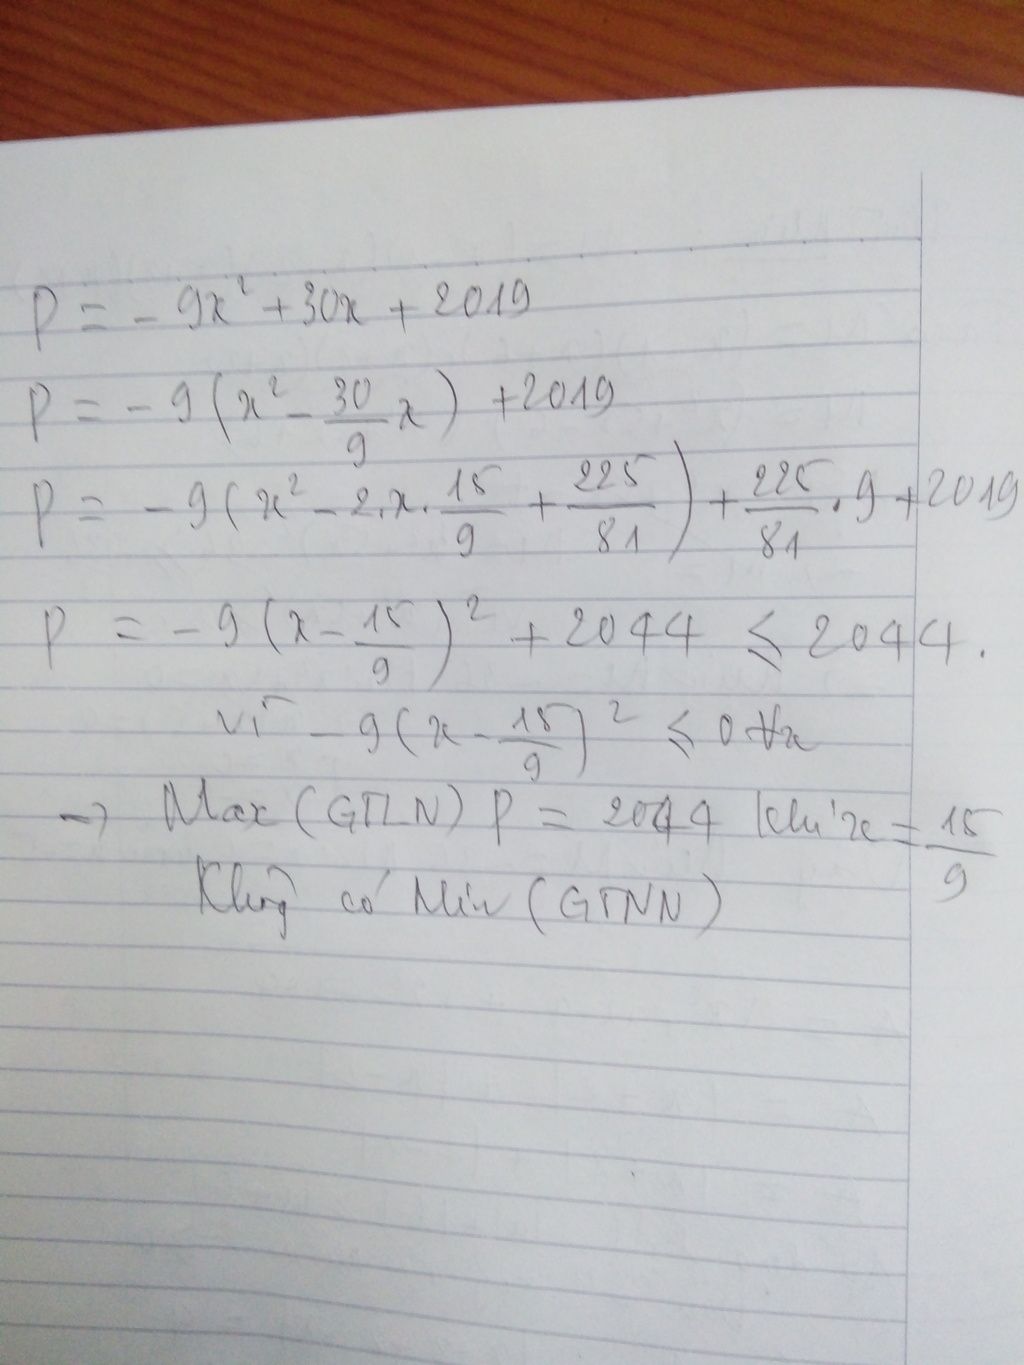 P = - 9x² + 30x + 2019
P = - 9(x² - 30/9 x) + 2019
P = - 9(x² - 2.x. 15/9 + 225/81) + 225/81 . 9 + 2019
P = - 9(x - 15/9)² + 2044 ⩽ 2044.
vì - 9(x - 15/9)² ⩽ 0 ∀x
→ Max (GTLN) P = 2044 khi x = 15/9
Khg có Min (GTNN)